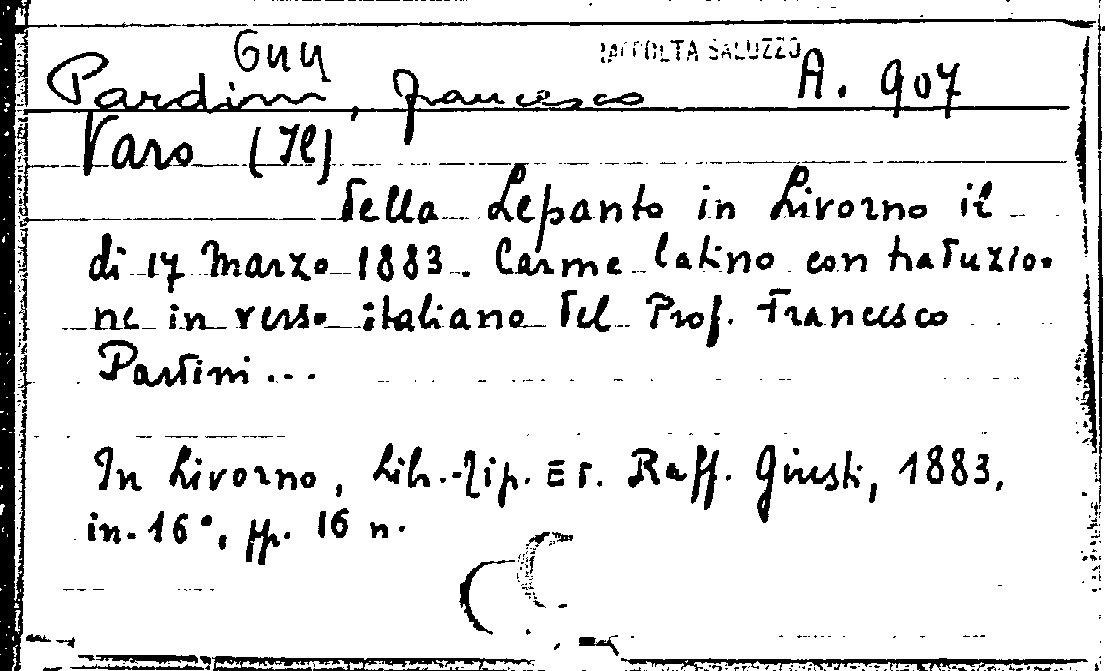 Guy
RACCOLTA SALUZZO
Pardini, Francesco A. 907
Varo (Il)
della Lepanto in Livorno il
di 17 Marzo 1883. Carme latino con traduzio-
ne in verso italiano del Prof. Francesco
Pardini...
In Livorno, Lib.-Tip. Ed. Raff. Giusti, 1883,
in-16°, pp. 16 n.